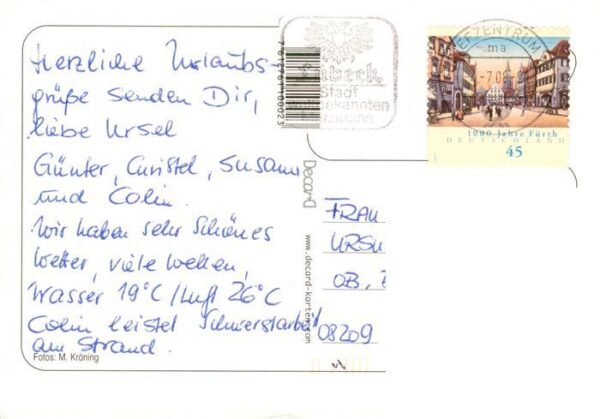 Herzliche Urlaubs-
grüße senden Dir,
liebe Ursel
Günter, Christel, Susann
und Colin.
Wir haben sehr schönes
Wetter, viele Wellen,
Wasser 19°C / Luft 26°C
Colin leistet Schwerstarbeit
am Strand.
Fotos: M. Kröning
7612761100023
Decard
www.decard-karten.com
Stadt
BRIEFZENTRUM
ma
1000 Jahre Fürth
DEUTSCHLAND
45
FRAU
URSU
OB,
08209